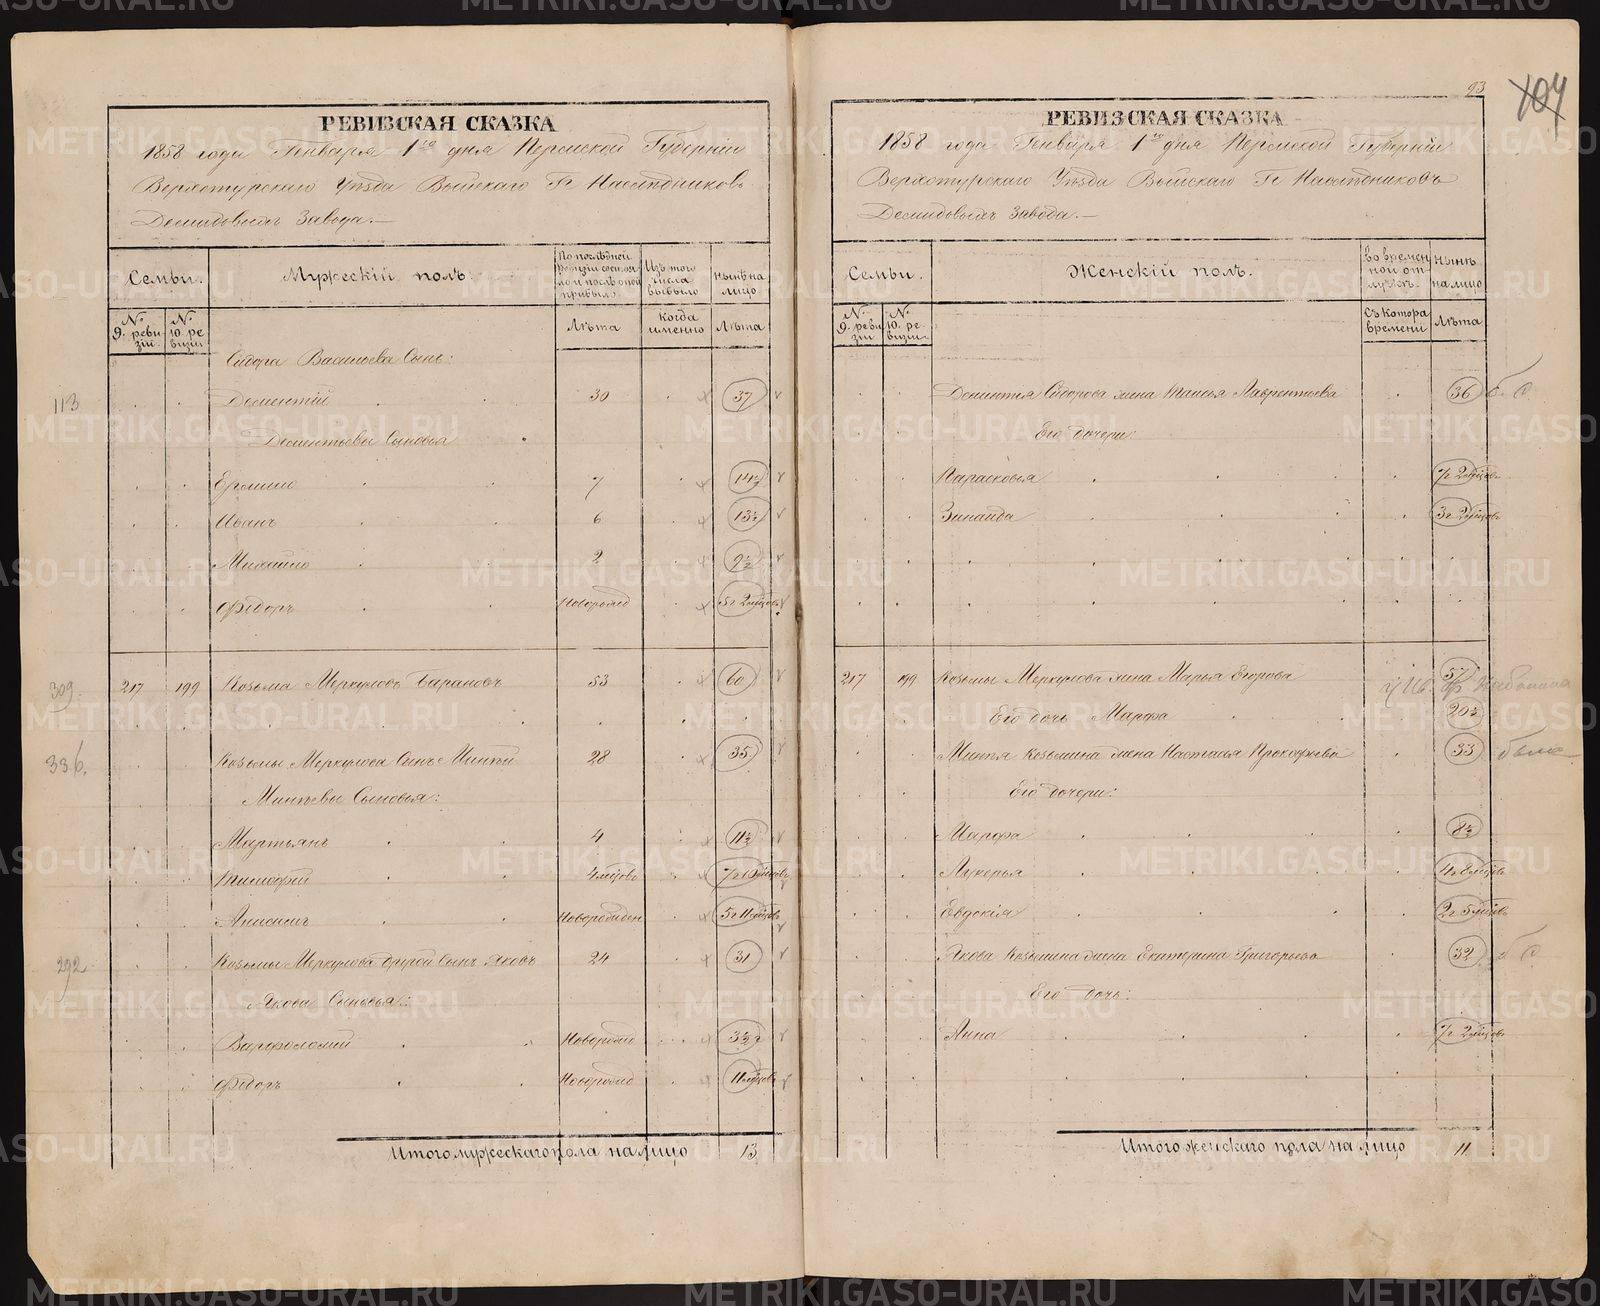 РЕВИЗСКАЯ СКАЗКА
1858 года Генваря 1го дня Пермской Губерніи
Верхотурскаго Уѣзда Выйскаго Гг Наслѣдниковъ
Демидовыхъ Завода.—
Семьи.
Мужескій полъ.
По послѣдней ревизіи состояло и послѣ оной прибыло
Изъ того числа выбыло
Нынѣ на лицо
№ 9. ревизіи
№ 10. ревизіи
Лѣта
когда именно
Лѣта
Сидора Васильева Сынъ:
113 Дементій 30 37
Дементьевы Сыновья
7 14½
Иванъ 6 13½
Михайло 2 9½
Ѳедоръ Новорожд 5г 2мѣсцовъ
309. 217 199 Козьма Меркуловъ Барановъ 53 60
336. Козьмы Меркулова Сынъ Минѣй 28 35
Минѣевы Сыновья:
Мартьянъ 4 11½
Тимофей 4мѣсцовъ
Анисимъ Новорожден 5г 11мѣсцовъ
292 Козьмы Меркулова другой Сынъ Яковъ 24 31
Якова Сыновья:
Варфоломей Новорожд
Ѳедоръ Новорожд 11мѣсцовъ
Итого мужескаго пола на лицо 13
93
104
РЕВИЗСКАЯ СКАЗКА
1858 года Генваря 1го дня Пермской Губерніи
Верхотурскаго Уѣзда Выйскаго Гг Наслѣдниковъ
Демидовыхъ Завода.—
Семьи.
Женскій полъ.
Во временной отлучкѣ
Нынѣ на лицо
№ 9. ревизіи
№ 10. ревизіи
Съ котора времени
Лѣта
Дементья Сидорова жена Таисья Лаврентьева 36
Его дочери:
Парасковья 7г 2мѣсцовъ
Зинаида 3г 2мѣсцовъ
217 199 Козьмы Меркулова жена Марья Егорова 57
Его дочь Марфа 20½
Минѣя Козьмина жена Настасья Прокофьева 33
Его дочери:
Марфа 8½
Лукерья 4г 8мѣсцовъ
Евдокія 2г 5мѣсцовъ
Якова Козьмина жена Екатерина Григорьева 32
Его дочь:
Анна 7г 2мѣсцовъ
Итого женскаго пола на лицо 11
METRIKI.GASO-URAL.RU